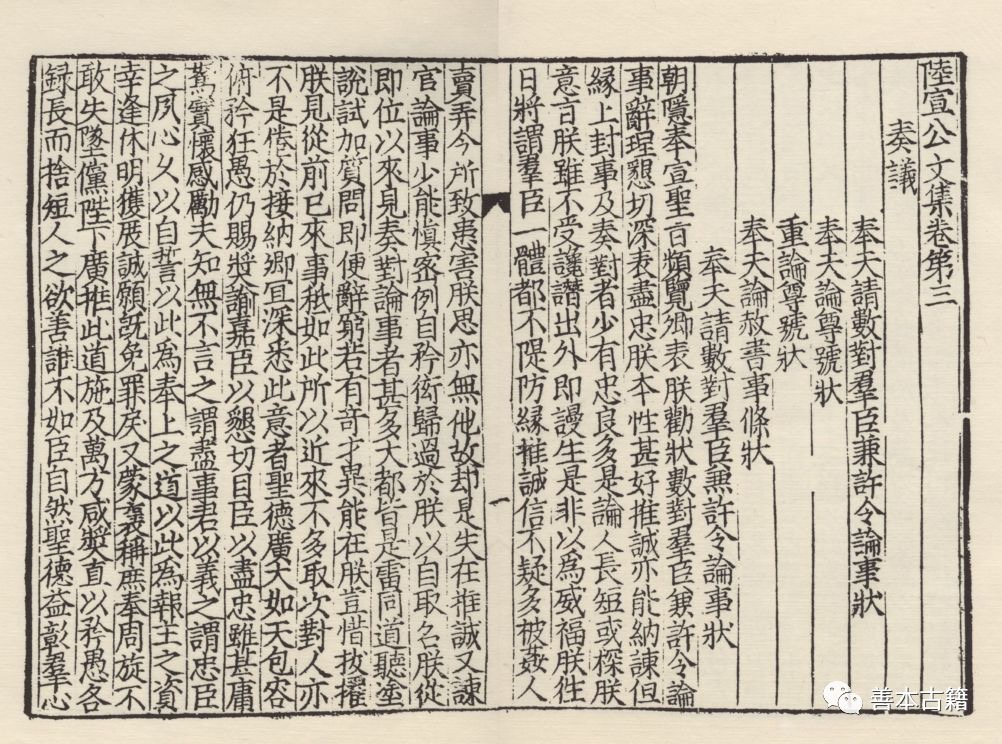 陸宣公文集卷第三
奏議
奉天請數對羣臣兼許令論事狀
奉天論尊號狀
重論尊號狀
奉天論赦書事條狀
奉天請數對羣臣兼許令論事狀
朝隱奉宣聖旨頻覽卿表朕勸狀數對羣臣兼許令論
事辭理懇切深表盡忠朕本性甚好推誠亦能納諫但
緣上封事及奏對者少有忠良多是論人長短或探朕
意旨朕雖不受讒譖出外即謾生是非以為威福朕往
日將謂羣臣一體都不隄防緣推誠信不疑多被姦人
一
賣弄今所致患害朕思亦無他故却是失在推誠又諫
官論事少能慎密例自矜衒歸過於朕以自取名朕從
即位以來見奏對論事者甚多大都皆是雷同道聽塗
說試加質問即便辭窮若有奇才異能在朕豈惜拔擢
朕見從前已來事秪如此所以近來不多取次對人亦
不是倦於接納卿宜深悉此意者聖德廣大如天包容
俯矜狂愚仍賜奬諭嘉臣以懇切目臣以盡忠雖甚庸
駑實懷感勵夫知無不言之謂盡事君以義之謂忠臣
之夙心久以自誓以此為奉上之道以此為報主之資
幸逢休明獲展誠願既免罪戾又蒙褒稱庶奉周旋不
敢失墜儻陛下廣推此道施及萬方咸奬直以矜愚各
録長而捨短人之欲善誰不如臣自然聖德益彰羣心
善本古籍